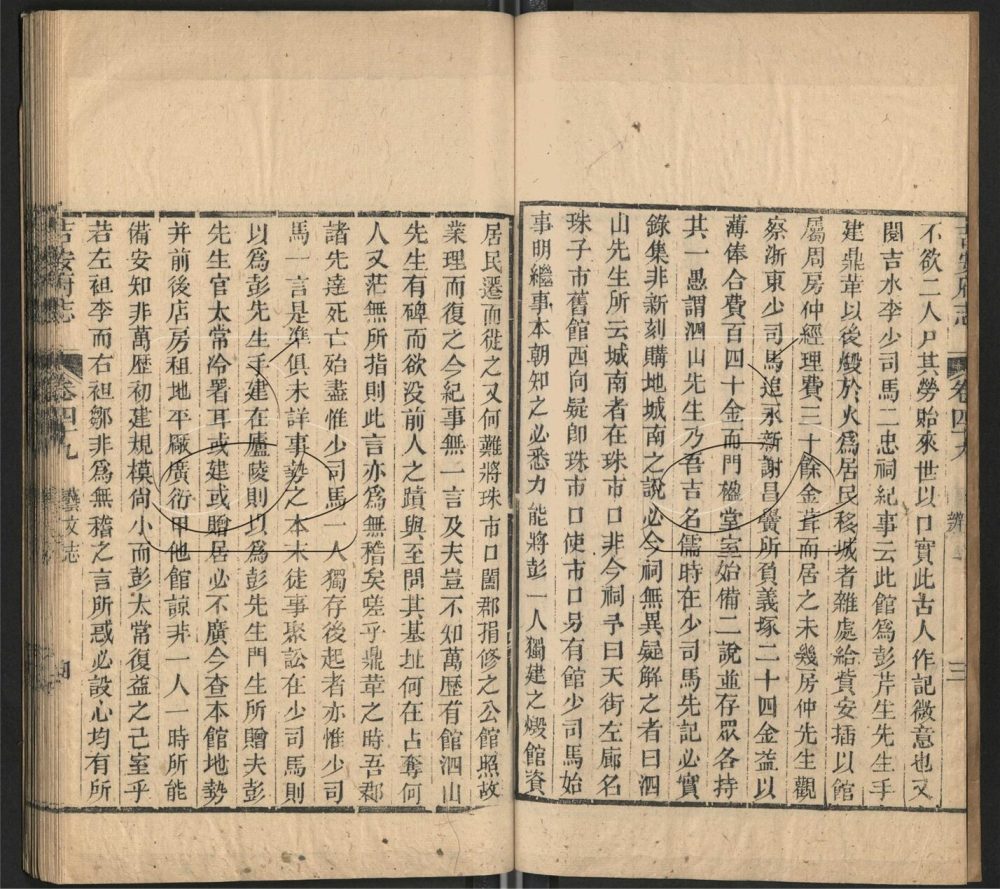 吉安府志
卷四十九
三
不欲二人尸其勞貽來世以口實此古人作記微意也又
閱吉水李少司馬二忠祠紀事云此館為彭芹生先生手
建鼎革以後燬於火為居民移城者雜處給貲安插以館
屬周房仲經理費三十餘金葺而居之未幾房仲先生觀
察浙東少司馬追永新謝昌黌所負義塚二十四金益以
薄俸合費百四十金而門楹堂室始備二說並存眾各持
其一愚謂泗山先生乃吾吉名儒時在少司馬先記必實
錄集非新刻購地城南之說必今祠無異疑解之者曰泗
山先生所云城南者在珠市口非今祠予曰天街左廊名
珠子市舊館西向疑卽珠市口使市口另有館少司馬始
事明繼事本朝知之必悉力能將彭一人獨建之燬館資
居民遷而從之又何難將珠市口闔郡捐修之公館照故
業理而復之今紀事無一言及夫豈不知萬歷有館泗山
先生有碑而欲没前人之蹟與至問其基址何在占奪何
人又茫無所指則此言亦為無稽矣嗟乎鼎革之時吾郡
諸先達死亡殆盡惟少司馬一人獨存後起者亦惟少司
馬一言是準俱未詳事勢之本末徒事聚訟在少司馬則
以為彭先生手建在廬陵則以為彭先生門生所贈夫彭
先生官太常冷署耳或建或贈居必不廣今查本館地勢
并前後店房租地平厰廣衍甲他館諒非一人一時所能
備安知非萬歷初建規模尙小而彭太常復益之己室乎
若左袒李而右袒鄒非為無稽之言所惑必設心均有所
吉安府志
卷四十九
藝文志